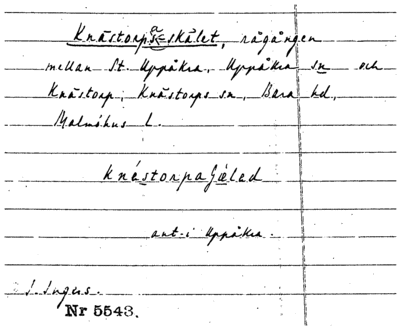 Knästorps-skälet, rågången
mellan St. Uppåkra, Uppåkra sn och
Knästorp, Knästorps sn, Bara hd,
Malmöhus l.
ant. i Uppåkra.
I. Ingers.
Nr 5543.